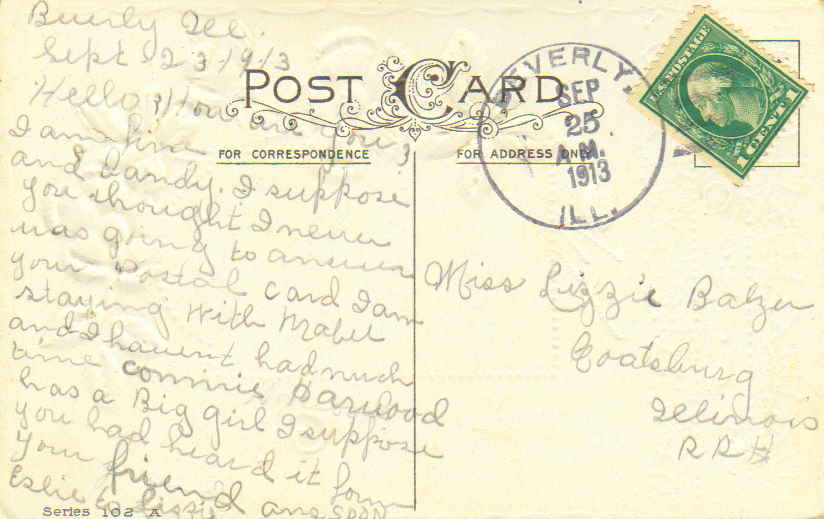 Buerly Ill.
Sept 23 1913
Hello How are you?
I am fine
and Dandy. I suppose
you thought I never
was going to answer
your Postal card I am
staying with Mabel
and I havent had much
time connie Harwood
has a Big girl I suppose
you had heard it form
your friend
Eslie to Lizzie ans soon
Series 102 A
POST CARD
FOR CORRESPONDENCE
FOR ADDRESS ONLY
BEVERLY,
SEP
25
A.M.
1913
ILL.
U.S. POSTAGE
1 CENT 1
Miss Lizzie Balzer
Coatsburg
Illinois